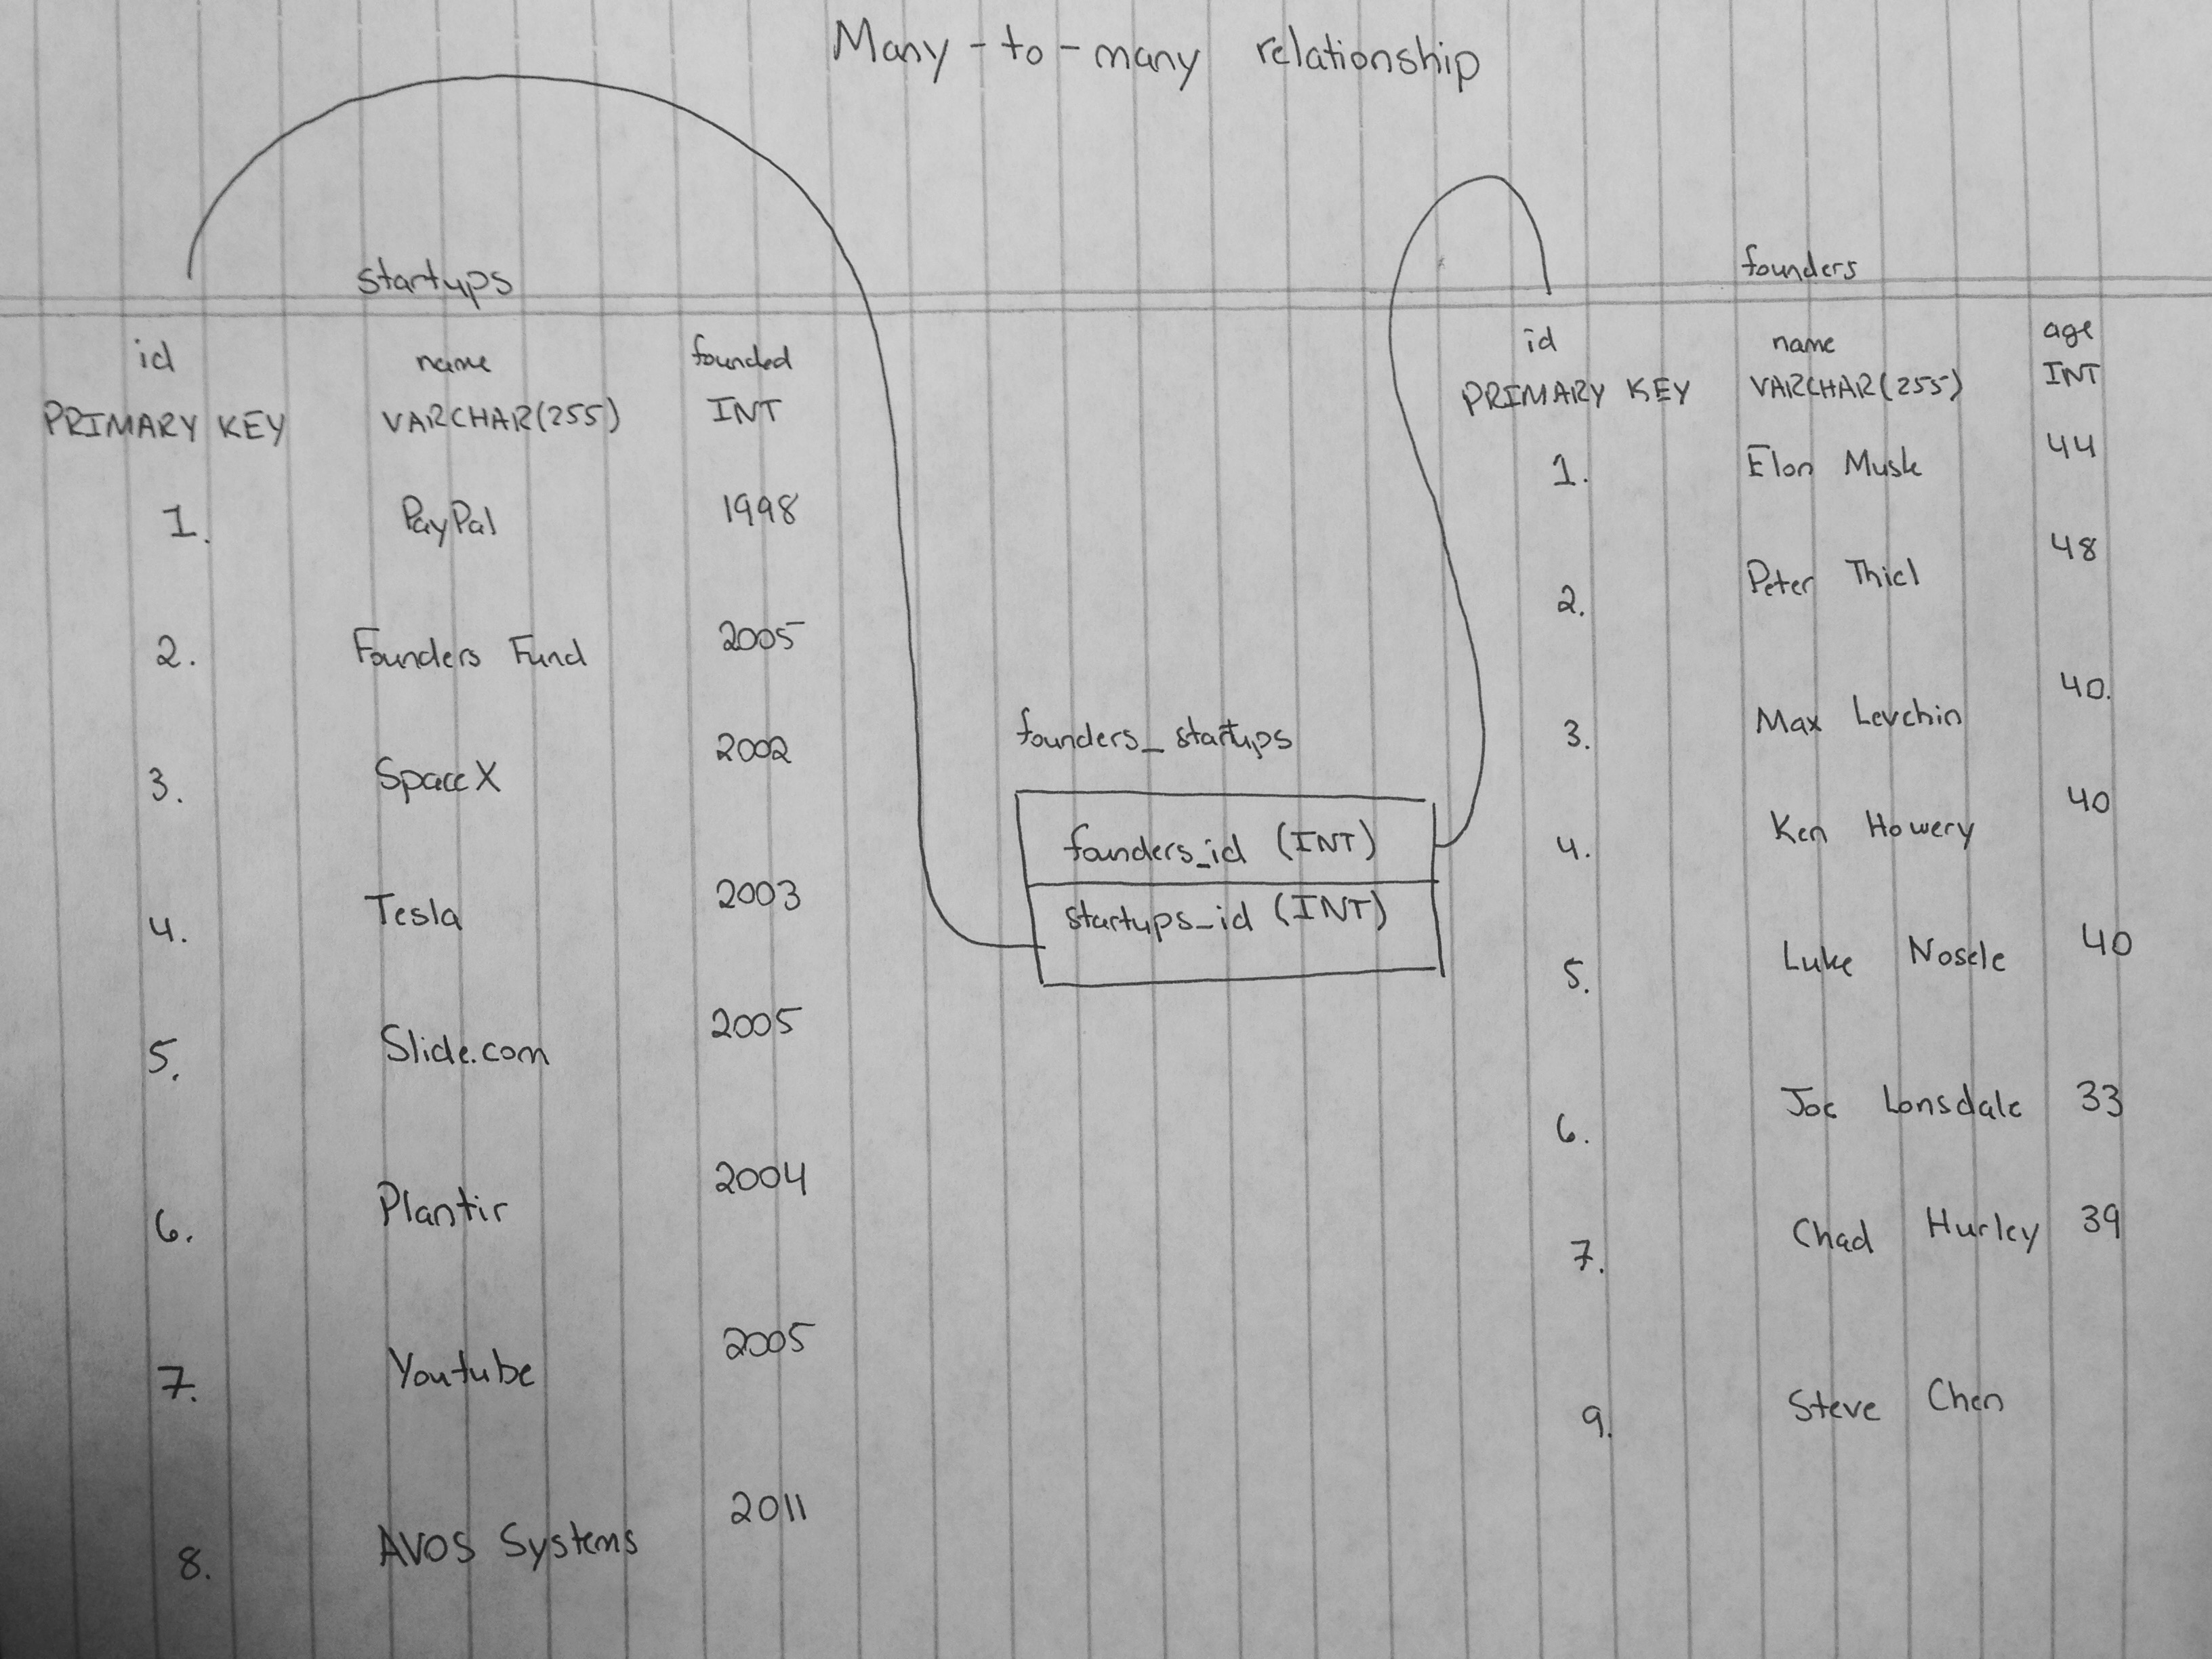 Many-to-many relationship
startups
id name founded
PRIMARY KEY VARCHAR(255) INT
1. PayPal 1998
2. Founders Fund 2005
3. SpaceX 2002
4. Tesla 2003
5. Slide.com 2005
6. Plantir 2004
7. Youtube 2005
8. AVOS Systems 2011
founders_startups
founders_id (INT)
startups_id (INT)
founders
id name age
PRIMARY KEY VARCHAR(255) INT
1. Elon Musk 44
2. Peter Thiel 48
3. Max Levchin 40.
4. Ken Howery 40
5. Luke Nosele 40
6. Joe Lonsdale 33
7. Chad Hurley 39
9. Steve Chen